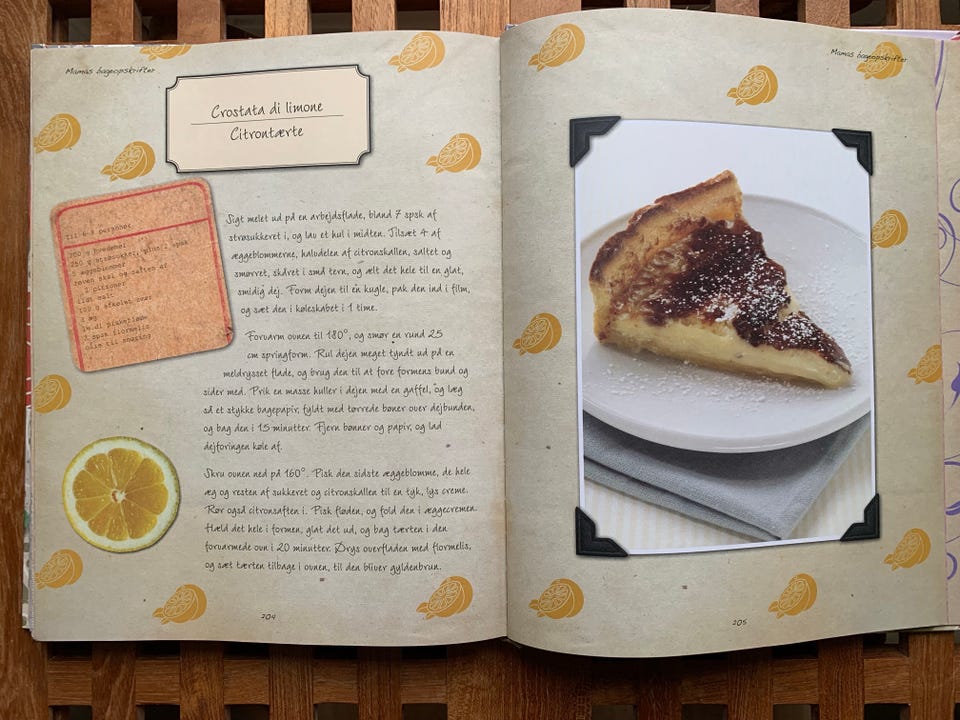 Mamas bageopskrifter
Crostata di limone
Citrontærte
Til 6-8 personer
250 g hvedemel
250 g strøsukker, plus 2 spsk
5 æggeblommer
revet skal og saften af
2 citroner
lidt salt
100 g afkølet smør
2 æg
dl piskefløde
3 spsk flormelis
olie til smøring
Sigt melet ud på en arbejdsflade, bland 7 spsk af
strøsukkeret i, og lav et hul i midten. Tilsæt 4 af
æggeblommerne, halvdelen af citronskallen, saltet og
smørret, skåret i små tern, og ælt det hele til en glat,
smidig dej. Form dejen til en kugle, pak den ind i film,
og sæt den i køleskabet i 1 time.
Forvarm ovnen til 180°, og smør en rund 25
cm springform. Rul dejen meget tyndt ud på en
meldrysset flade, og brug den til at fore formens bund og
sider med. Prik en masse huller i dejen med en gaffel, og læg
så et stykke bagepapir, fyldt med tørrede bønner over dejbunden,
og bag den i 15 minutter. Fjern bønner og papir, og lad
dejforingen køle af.
Skru ovnen ned på 160°. Pisk den sidste æggeblomme, de hele
æg og resten af sukkeret og citronskallen til en tyk, lys creme.
Rør også citronsaften i. Pisk fløden, og fold den i æggecremen.
Hæld det hele i formen, glat det ud, og bag tærten i den
forvarmede ovn i 20 minutter. Drys overfladen med flormelis,
og sæt tærten tilbage i ovnen, til den bliver gyldenbrun.
204
Mamas bageopskrifter
205